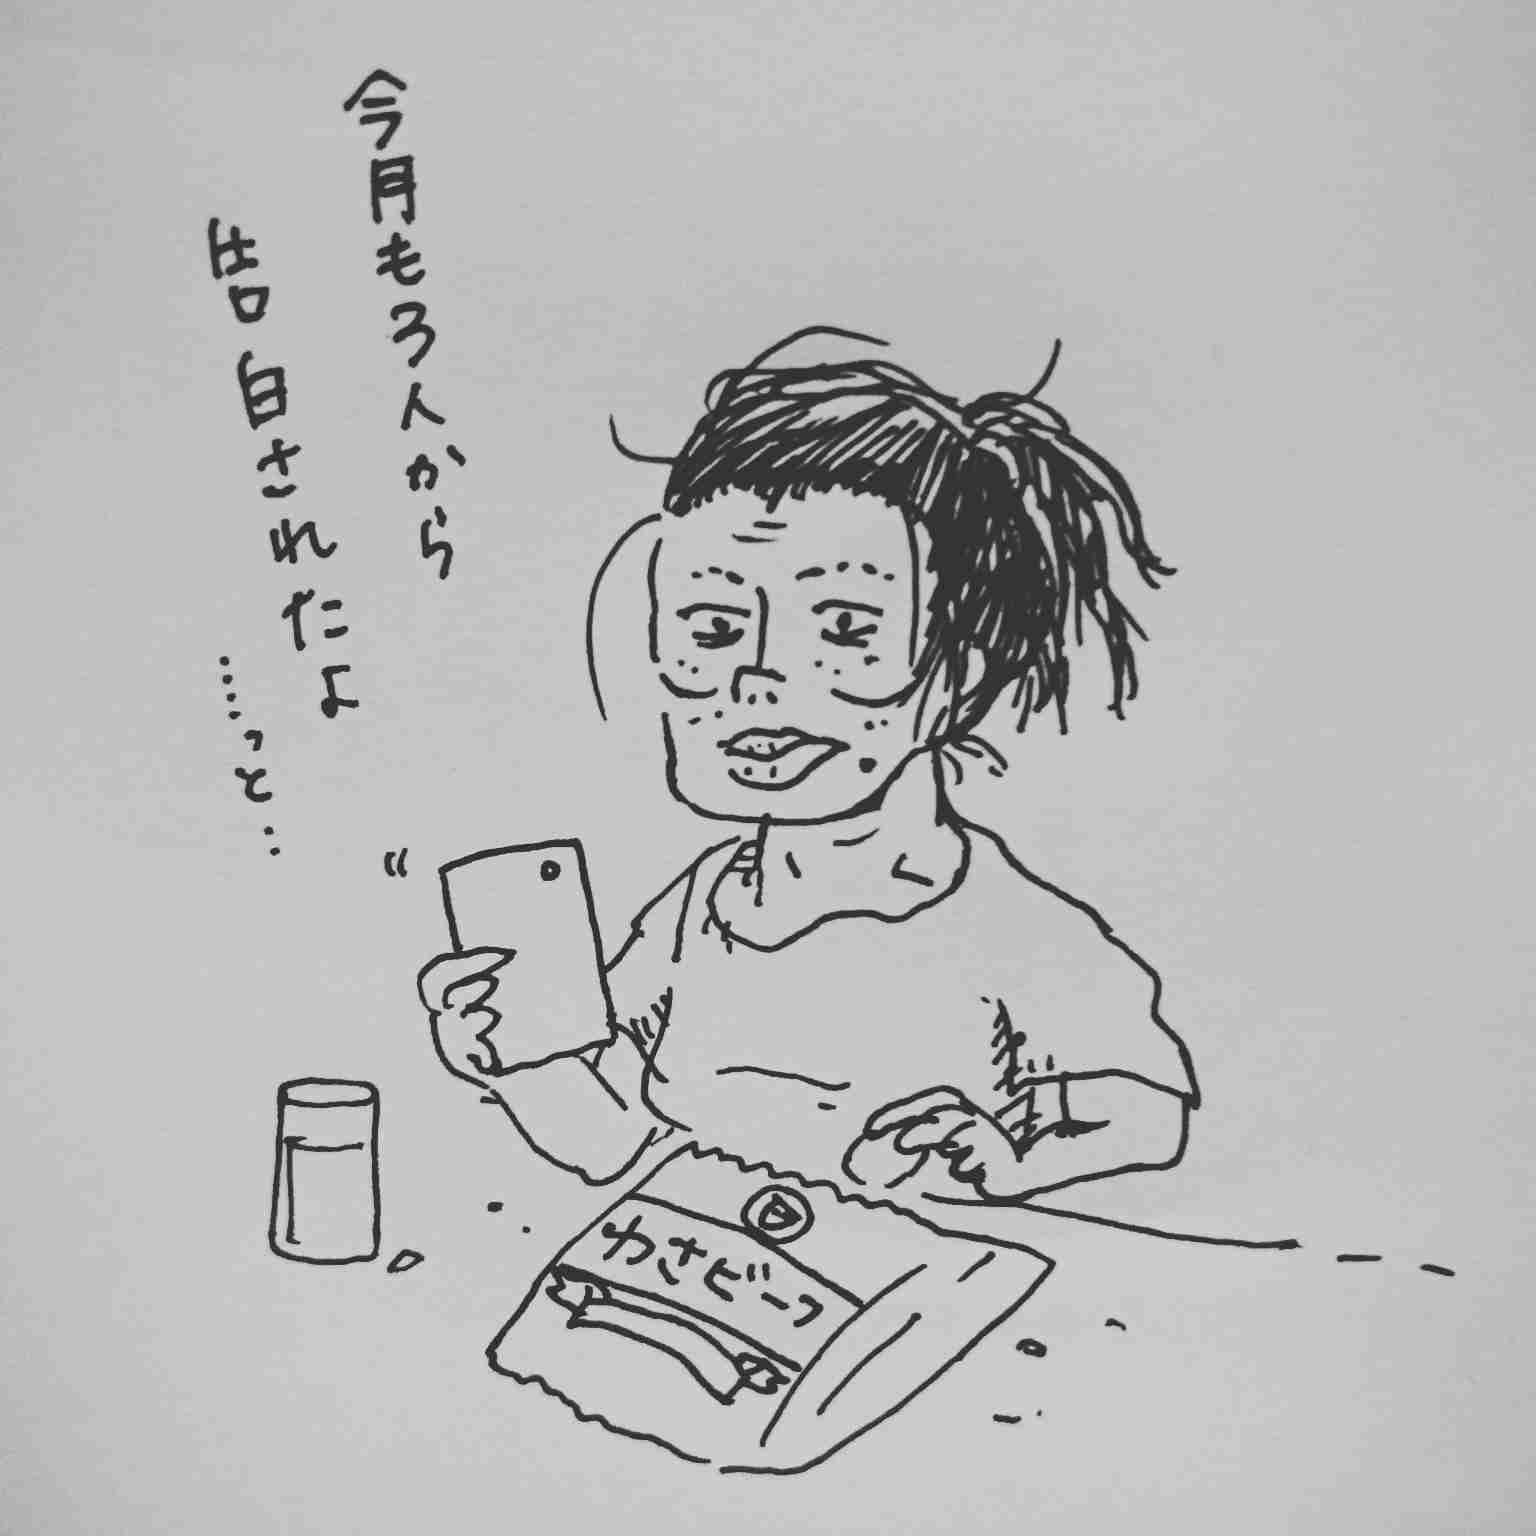 今月も3人から
告白されたよ
……っと‥
わさビーフ